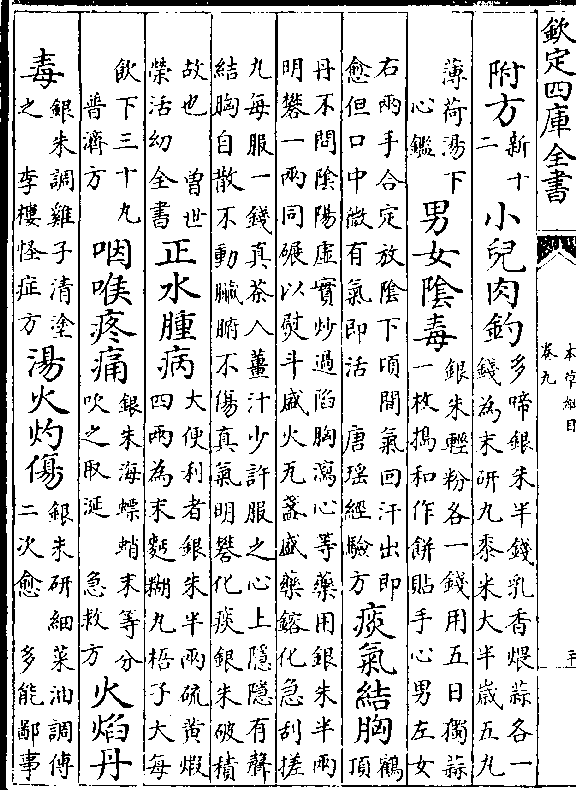 欽定四庫全書
本草綱目
卷九
附方
新十
二
小兒肉釣
多啼銀朱半錢乳香煨蒜各一
錢為末研丸黍米大半歲五丸
薄荷湯下
心鑑
男女陰毒
銀朱輕粉各一錢用五日獨蒜
一枚搗和作餅貼手心男左女
右兩手合定放陰下頃間氣回汗出即
愈但口中微有氣即活 唐瑶經驗方
痰氣結胸
鶴
頂
丹不問陰陽虛實炒過陷胸瀉心等藥用銀朱半兩
明礬一兩同碾以熨斗盛火瓦盞盛藥鎔化急刮搓
丸每服一錢真茶入薑汁少許服之心上隱隱有聲
結胸自散不動臟腑不傷真氣明礬化痰銀朱破積
故也 曾世
榮活幼全書
正水腫病
大便利者銀朱半兩硫黄煆
四兩為末麫糊丸梧子大每
飲下三十丸
普濟方
咽喉疼痛
銀朱海螵蛸末等分
吹之取涎 急救方
火焰丹
毒
銀朱調雞子清塗
之 李樓怪症方
湯火灼傷
銀朱研細菜油調傅
二次愈 多能鄙事